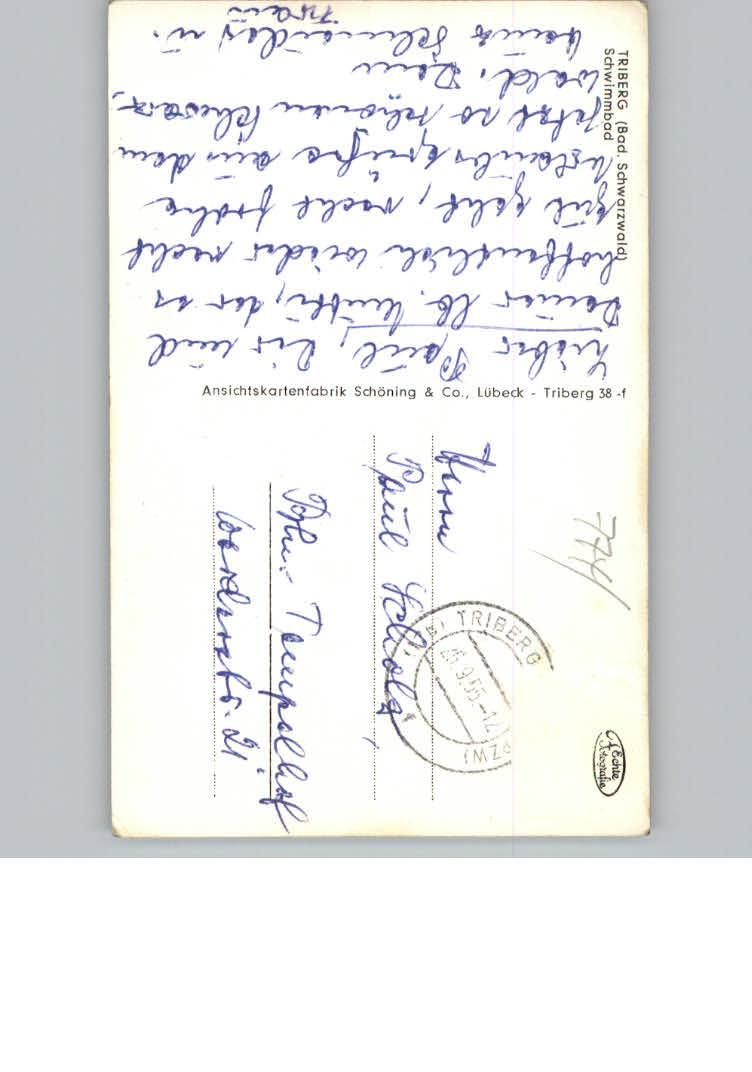 TRIBERG (Bad. Schwarzwald)
Schwimmbad
Lieber Paul, Dir und
Deiner lb. Mutti, der es
hoffentlich wieder recht
gut geht, recht frohe
Urlaubsgrüße aus dem
jetzt so schönen Schwarz-
wald. Dein
Heinz Schneider u.
Frau
Ansichtskartenfabrik Schöning & Co., Lübeck - Triberg 38 -f
Herrn
Paul Scholz,
Bln.- Tempelhof
21
774
TRIBERG
9.55.-12
Echte
Fotografie